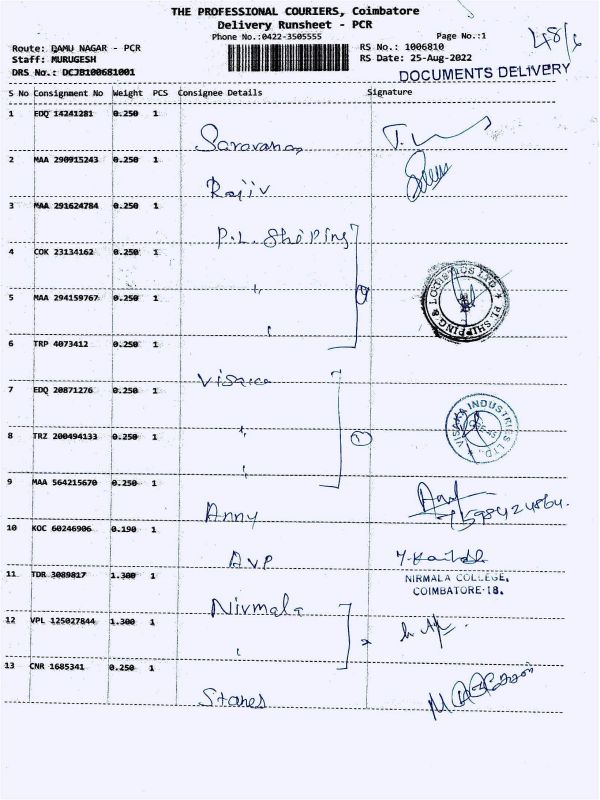 THE PROFESSIONAL COURIERS, Coimbatore
Delivery Runsheet - PCR
Phone No.:0422-3505555
Page No.:1
48/6
Route: DAMU NAGAR - PCR
RS No.: 1006810
Staff: MURUGESH
RS Date: 25-Aug-2022
DRS No.: DCJB100681001
DOCUMENTS DELIVERY
S No Consignment No Weight PCS Consignee Details Signature
1 EDQ 14241281 0.250 1
Saravanan
2 MAA 290915243 0.250 1
Rajiv
3 MAA 291624784 0.250 1
P.L. Shiping
4 COK 23134162 0.250 1
"
5 MAA 294159767 0.250 1
"
PL SHIPPING & LOGISTICS LTD.
6 TRP 4073412 0.250 1
Visaka
7 EDQ 20871276 0.250 1
"
8 TRZ 200494133 0.250 1
"
VISAKA INDUSTRIES LTD.,
9 MAA 564215670 0.250 1
Anny
10 KOC 60246906 0.190 1
AVP
11 TDR 3089817 1.300 1
NIRMALA COLLEGE,
COIMBATORE-18.
Nirmala
12 VPL 125027844 1.300 1
"
13 CNR 1685341 0.250 1
Stanes